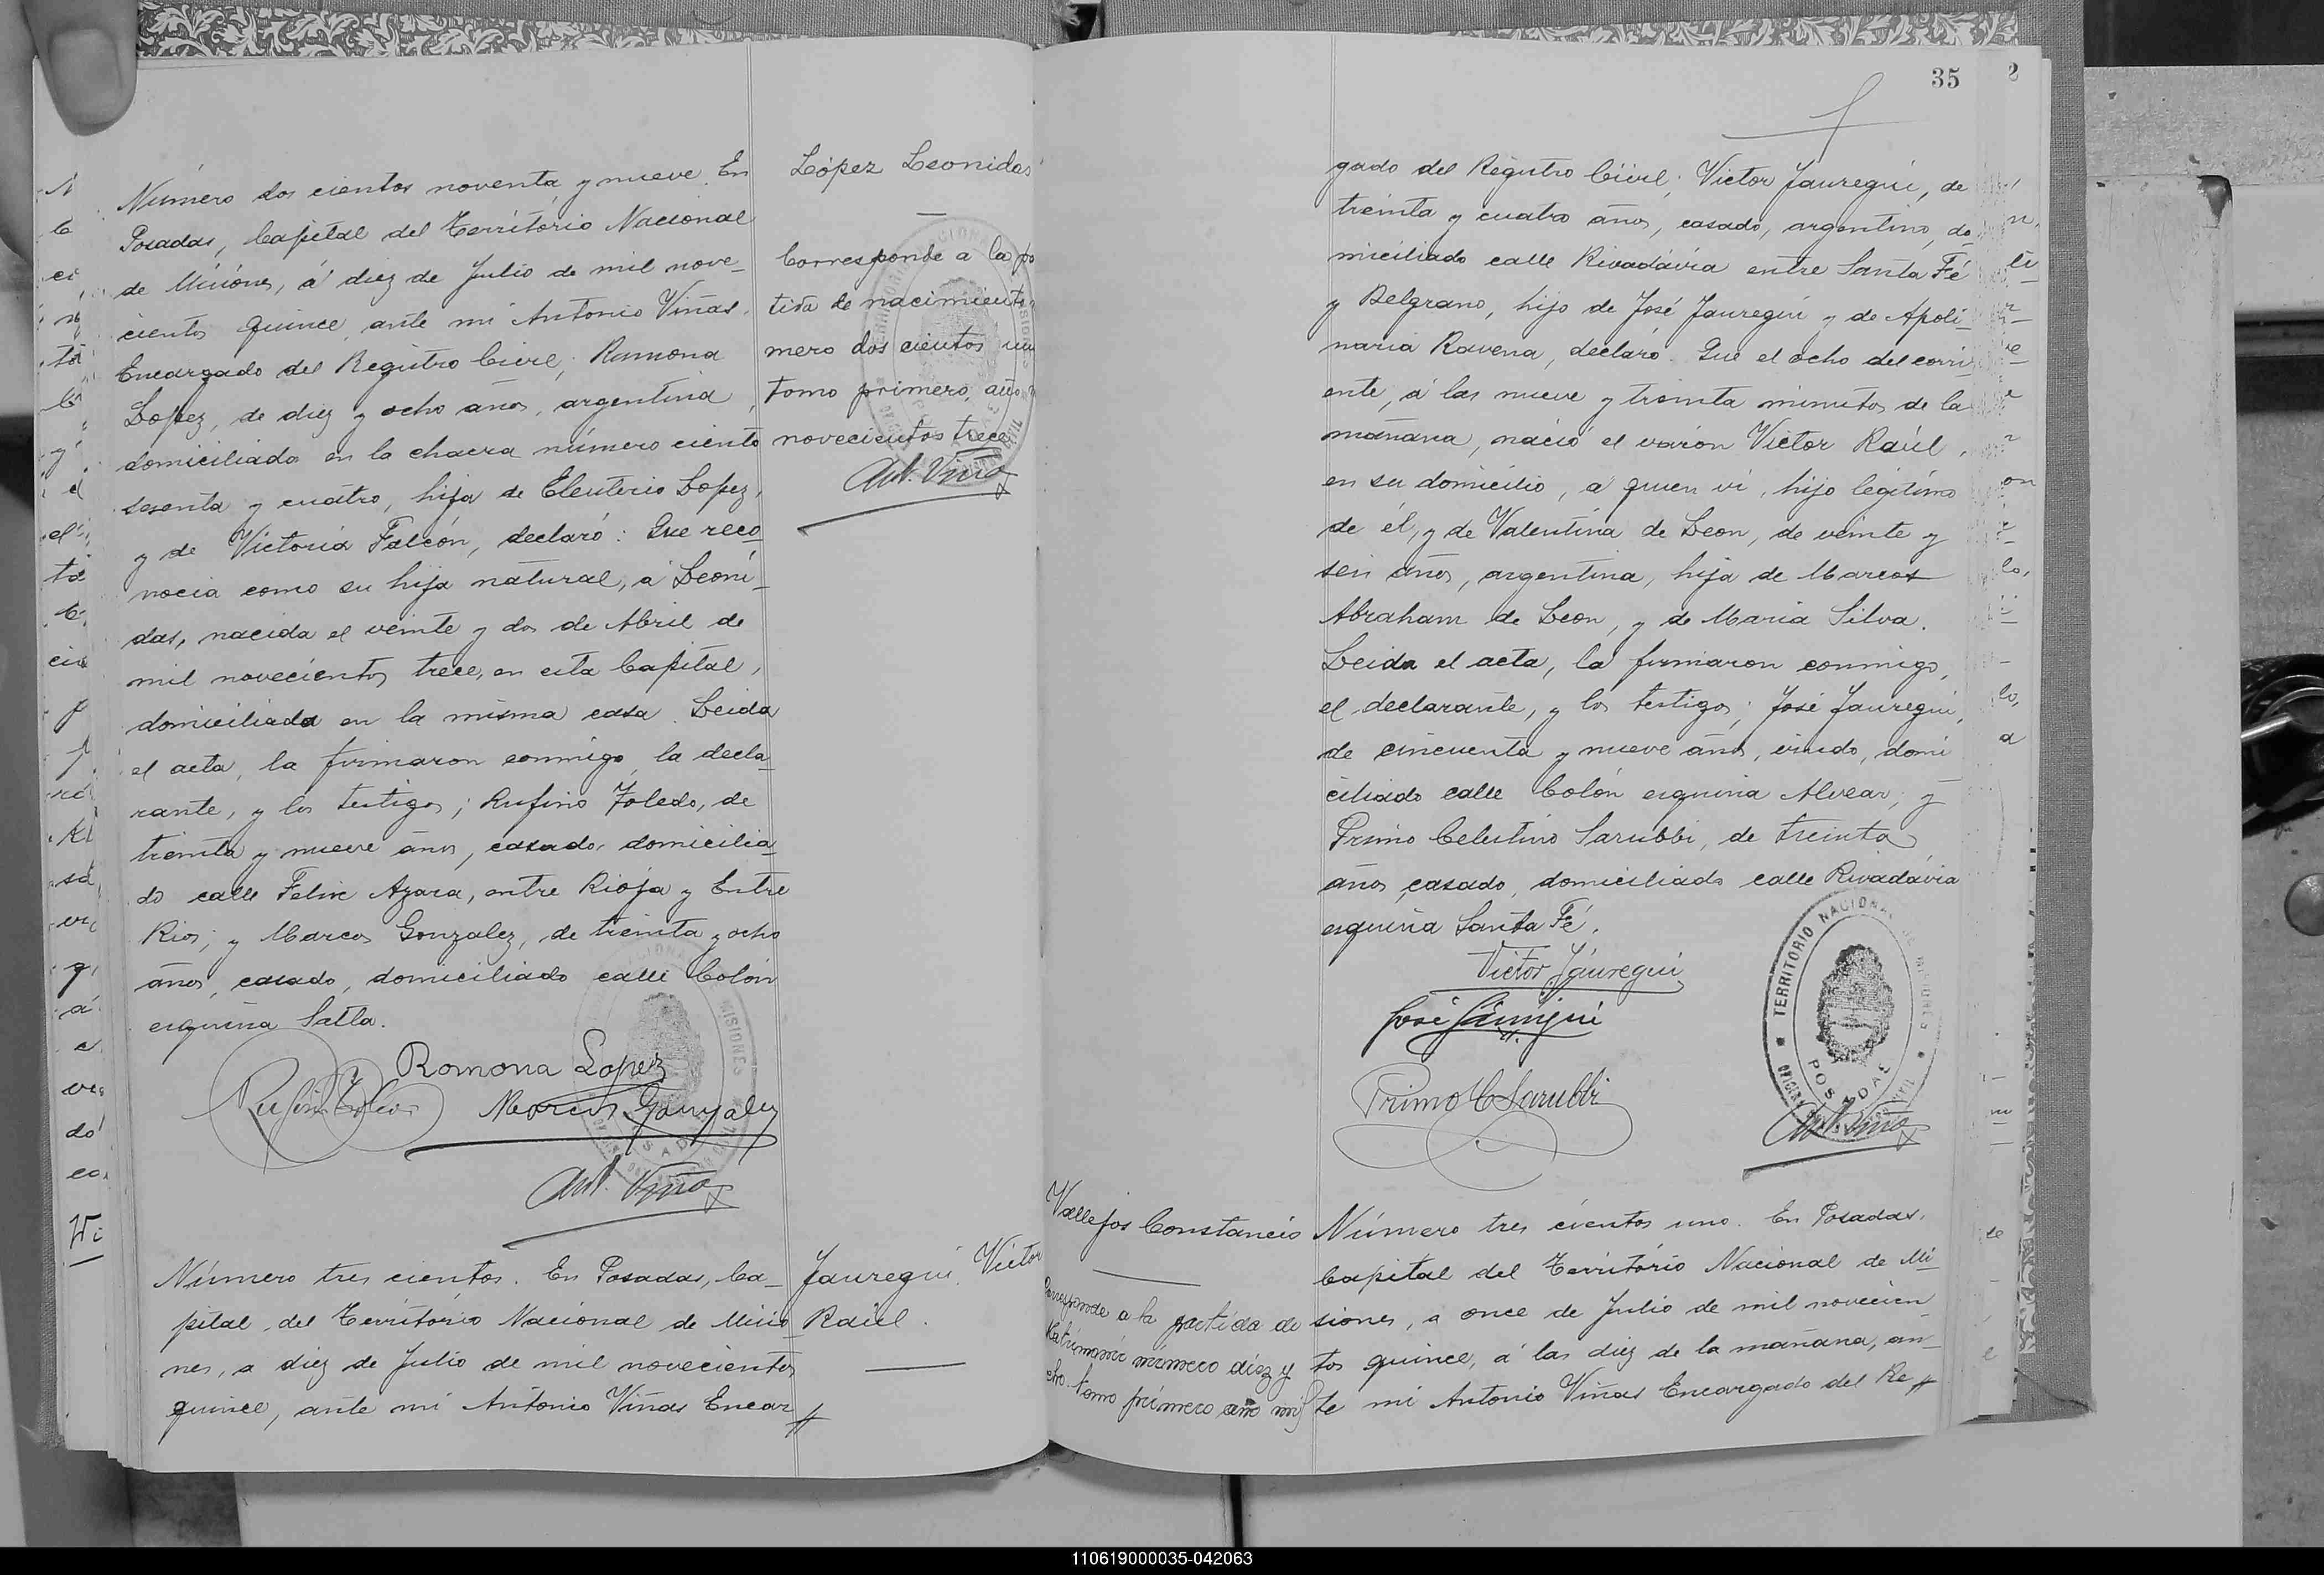 López Leonidas
Corresponde a la
tida de nacimiento
mero dos cientos
tomo primero, año
novecientos trece
Ant. Viñas
Número dos cientos noventa y nueve. En
Posadas, Capital del Território Nacional
de Misiones, á diez de Julio de mil nove-
cientos quince, ante mi Antonio Viñas,
Encargado del Registro Civil, Ramona
Lopez, de diez y ocho años, argentina,
domiciliada en la chacra número ciento
sesenta y cuatro, hija de Eleuterio Lopez,
y de Victoria Falcón, declaró: Que reco-
nocia como su hija natural, á Leoni-
das, nacida el veinte y dos de Abril de
mil novecientos trece, en esta Capital,
domiciliada en la misma casa. Leida
el acta, la firmaron conmigo, la decla-
rante, y los testigos; Rufino Toledo, de
treinta y nueve años, casado, domicilia-
do calle Felix Azara, entre Rioja y Entre
Rios; y Marcos Gonzalez, de treinta y ocho
años, casado, domiciliado calle Colón
esquina Salta.
Romona Lopez
Rufino Toledo
Marcos Gonzalez
Ant. Viñas
Jauregui, Victor
Raúl.
Número tres cientos. En Posadas, Ca-
pital del Território Nacional de Misio-
nes, a diez de Julio de mil novecientos
quince, ante mi Antonio Viñas Encar
35
2
gado del Registro Civil, Victor Jauregui, de
treinta y cuatro años, casado, argentino, do-
miciliado calle Rivadávia entre Santa Fé
y Belgrano, hijo de José Jauregui y de Apoli-
naria Ravena, declaró: Que el ocho del corri-
ente, á las nueve y treinta minutos de la
mañana, nació el varón Victor Raúl,
en su domicilio, á quien vi, hijo legítimo
de él, y de Valentina de Leon, de veinte y
seis años, argentina, hija de Marcos
Abraham de Leon, y de Maria Silva.
Leida el acta, la firmaron conmigo,
el declarante, y los testigos; José Jauregui,
de cincuenta y nueve años, viudo, domi
ciliado calle Colón esquina Alvear, y
Primo Celestino Sarubbi, de treinta
años, casado, domiciliado calle Rivadávia
esquina Santa Fé.
Victor Jáuregui
José Jáuregui
Primo C Sarubbi
TERRITORIO NACIONAL DE MISIONES
POSADAS
Ant. Viñas
Vallejos Constancio
Corresponde a la partida de
Matrimonio número diez y
ocho tomo primero año mil
Número tres cientos uno. En Posadas,
Capital del Território Nacional de Mi-
siones, a once de Julio de mil novecien
tos quince, á las diez de la mañana, an-
te mi Antonio Viñas Encargado del Re
110619000035-042063